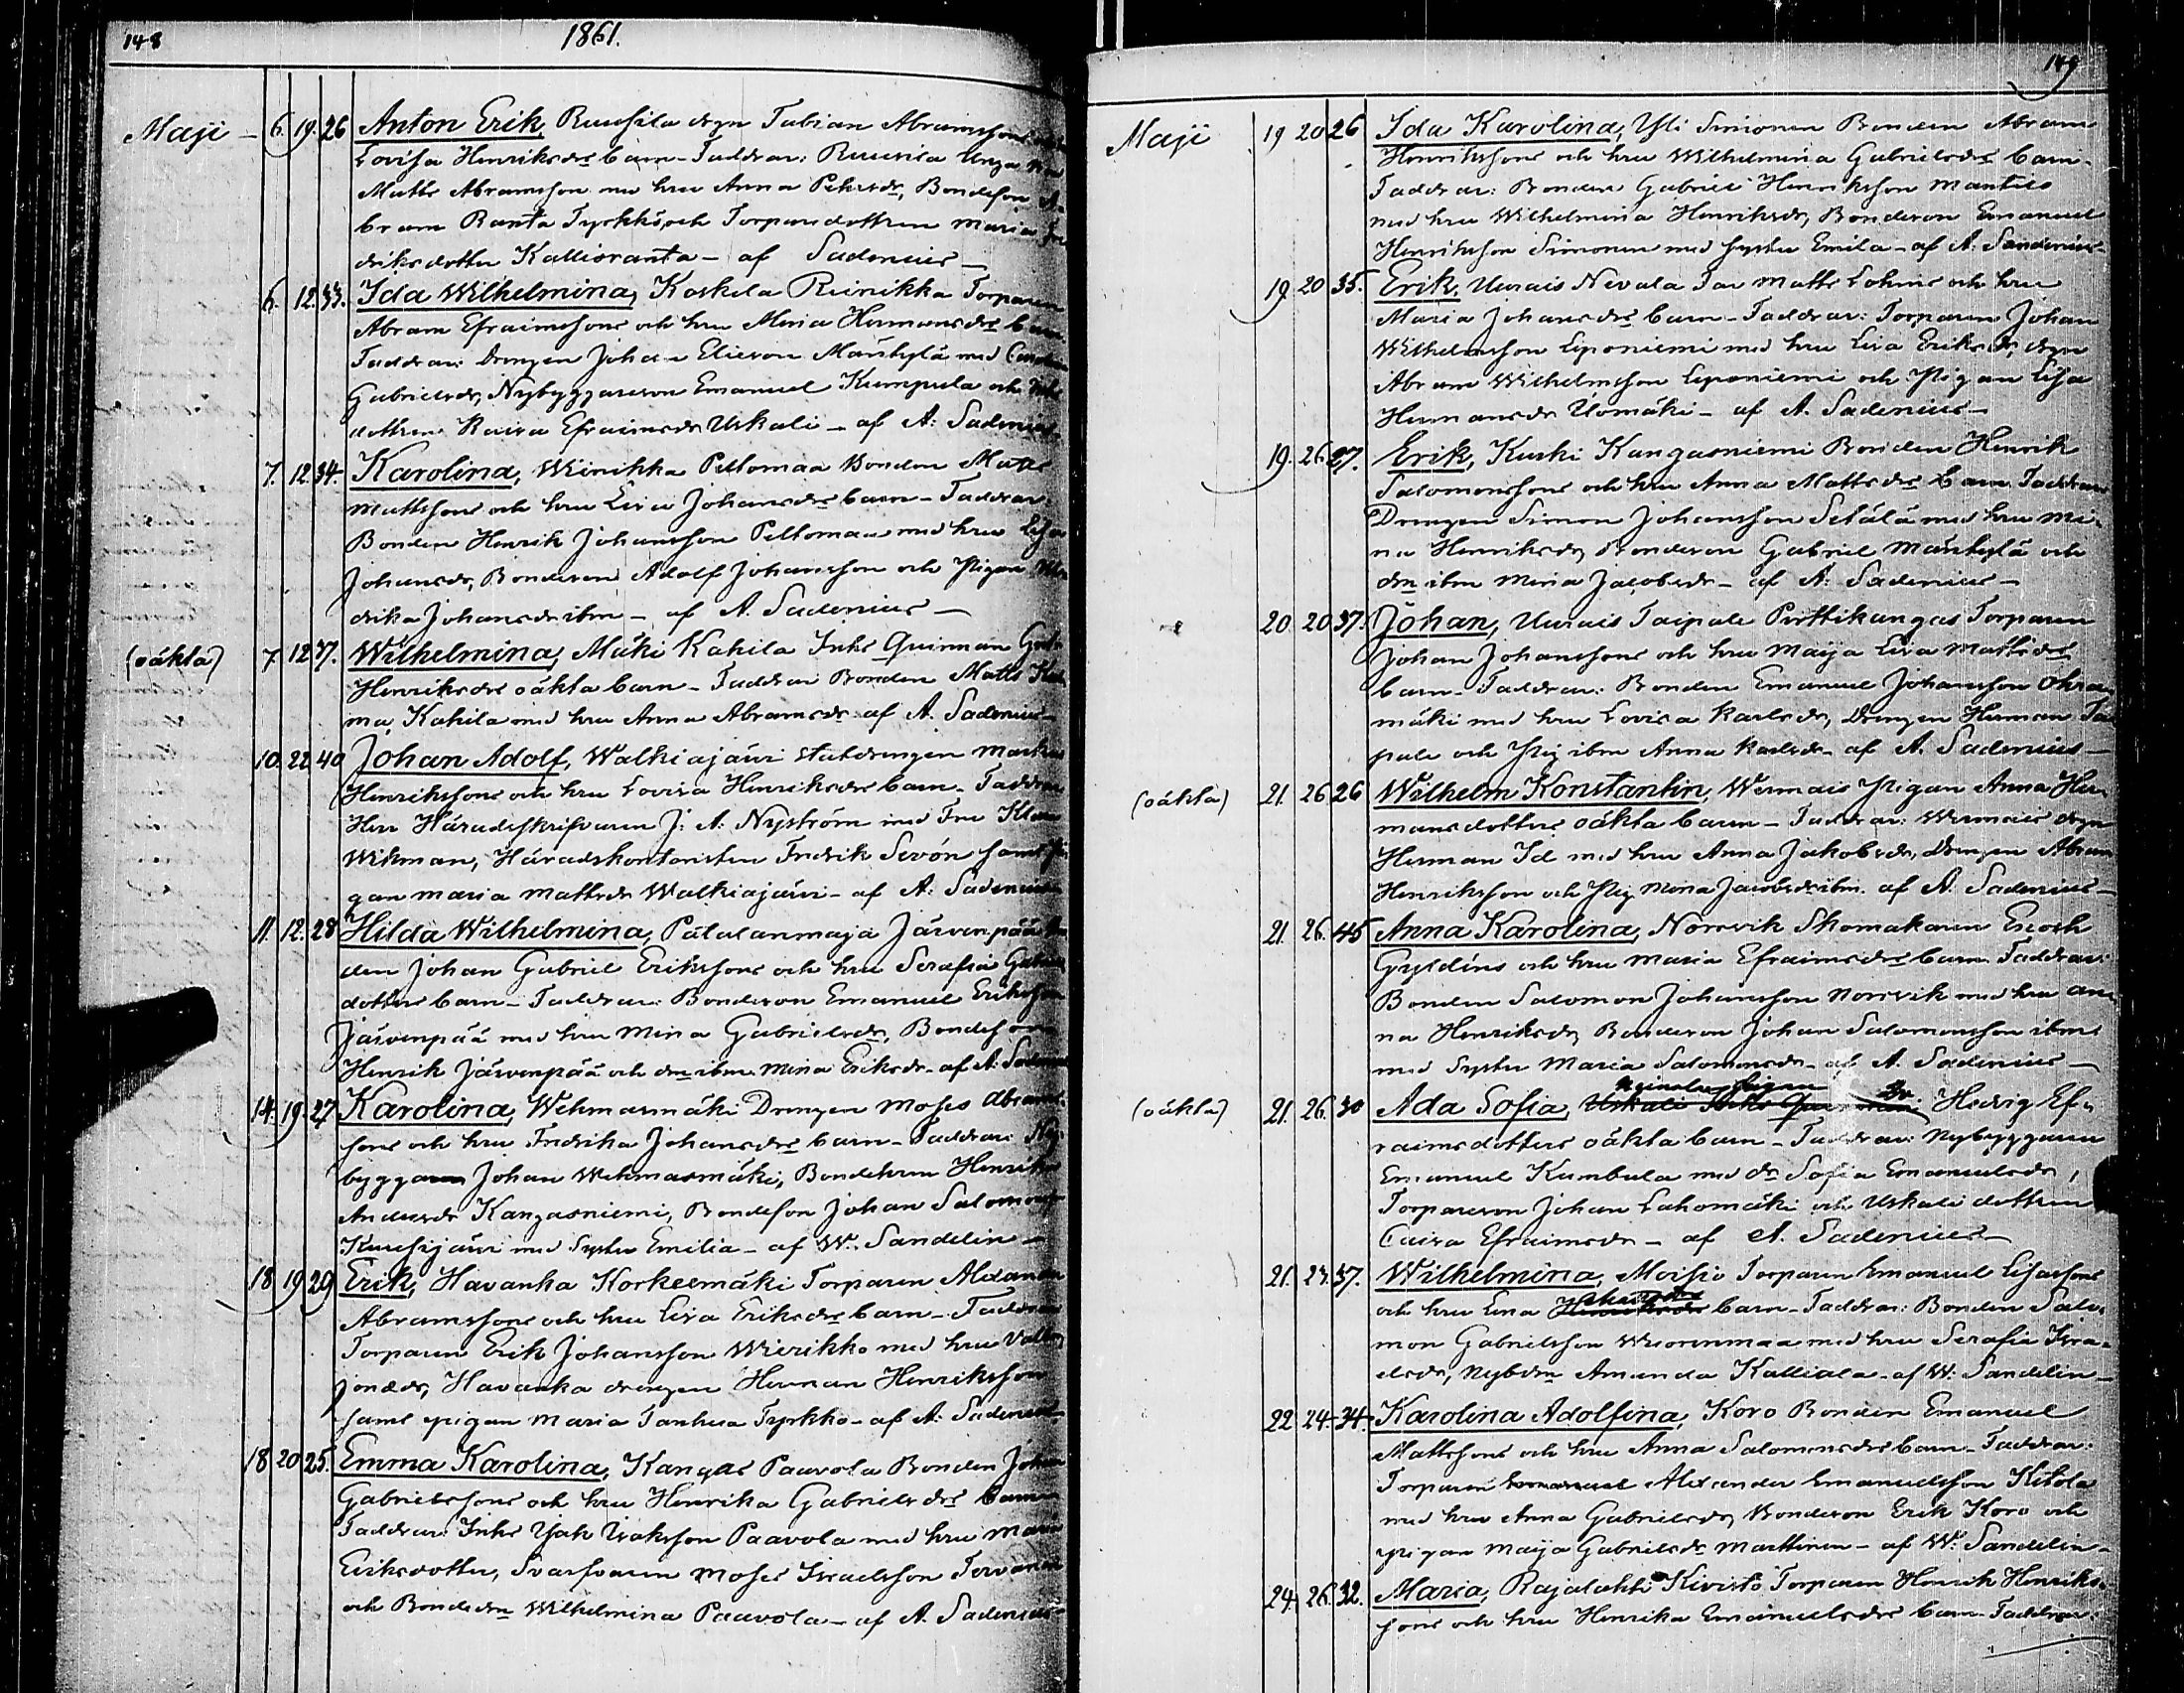 148
1861.
Maji - 6. 19. 26 Anton Erik, Ruusila drgn Fabian Abramssons
Lovisa Henriksdrs barn - Faddrar:
Matts Abramsson med hru Anna Petersdr, Bondeson A-
bram Ranta Tyrkkö och Torparedottren Maria
driksdotter Kallioranta - af Sadenius -
6. 12. 33. Ida Wilhelmina, Koskela Reinikka Torparen
Abram Efraimssons och hru Maria Hermansdrs barn
Faddrar: Drengen Johan Elieson Mäntylä med
Gabrielsdr, Nybyggareson Emanuel Kumpula och
dottren Kaisa Efraimsdr Uskali - af A: Sadenius
7. 12. 34. Karolina, Winikka Peltomaa Bonden Matts
Mattssons och hru Lisa Johansdrs barn - Faddrar:
Bonden Henrik Johansson Peltomaa med hru Lisa
Johansdr, Bondeson Adolf Johansson och Pigan
drika Johansdr ibm - af A. Sadenius -
(oäkta) 7. 12. 37. Wilhelmina, Mäki Kahila Inhs Qvinnan
Henriksdrs oäkta barn - Faddrar Bonden Matts
ma, Kahila med hru Anna Abramsdr - af A. Sadenius -
10. 22. 40 Johan Adolf, Walkiajärvi statdrengen Markus
Henrikssons och hru Lovisa Henriksdrs barn - Faddrar
Herr Häradsskrifvaren J: A: Nyström med Fru
Wikman, Häradskontoristen Fredrik Sevón samt Pi-
gan Maria Mattsdr Walkiajärvi - af A: Sadenius
11. 12. 28 Hilda Wilhelmina, Pätulanmaja Järvenpää Bon-
den Johan Gabriel Erikssons och hru Serafia Gabriels
dotters barn - Faddrar: Bondeson Emanuel Eriksson
Järvenpää med hru Mina Gabrielsdr, Bondeson
Henrik Järvenpää och drn ibm Mina Eriksdr - af A: Sadenius
14. 19. 27 Karolina, Wehmasmäki Drengen Moses Abrams-
sons och hru Fredrika Johansdrs barn - Faddrar: Ny-
byggaren Johan Wehmasmäki, Bondehrun Henrika
Andersdr Kangasniemi, Bondeson Johan Salomonsson
Kuusijärvi med Syster Emilia - af W. Sandelin -
18 19 29 Erik, Havanka Korkeemäki Torparen Alexander
Abramssons och hru Lisa Eriksdrs barn - Faddrar
Torparen Erik Johansson Wierikko med hru
Jonædr, Havanka drengen Herman Henriksson
samt pigan Maria Tanhua Tyrkkö - af A: Sadenius
18 20 25. Emma Karolina, Kangas Paavola Bonden Johan
Gabrielssons och hru Henrika Gabrielsdrs barn
Faddrar: Inhs Isak Isaksson Paavola med hru Maria
Eriksdotter, Svarfvaren Moses Israelsson
och Bondedrn Wilhelmina Paavola - af A. Sadenius -
149
Maji 19 20 26 Ida Karolina, Yli Simonen Bonden Abram
Henrikssons och hru Wilhelmina Gabrielsdrs barn -
Faddrar: Bonden Gabriel Henriksson Manties
med hru Wilhelmina Henriksdr, Bondeson Emanuel
Henriksson Simonen med syster Emila - af A. Sandenius -
19. 20 35. Erik, Uurais Nevala Tar Matts Lohms och hru
Maria Johansdrs barn - Faddrar: Torparen Johan
Wilhelmsson Leponiemi med hru Lisa Eriksdr, drgn
Abram Wilhelmsson Leponiemi och Pigan Lisa
Hermansdr Uomäki - af A. Sadenius -
19. 26. 27. Erik, Kuski Kangasniemi Bonden Henrik
Salomonssons och hru Anna Mattsdrs barn Faddrar
Drengen Simon Johansson Setälä med hru Mi-
na Henriksdr, Bondeson Gabriel Mäntylä och
drn ibm Mina Jacobsdr - af A: Sadenius -
20. 20 37. Johan, Uurais Taipale Pirttikangas Torparen
Johan Johanssons och hru Maija Lisa Mattsdrs
barn - Faddrar: Bonden Emanuel Johansson Ohra-
mäki med hru Lovisa Karlsdr, Drengen Herman Tai
pale och Pig ibm Anna Karlsdr - af A. Sadenius -
(oäkta) 21. 26 26 Wilhelm Konstantin, Wermais Pigan Anna Her-
mansdotters oäkta barn - Faddrar: Wermais drgn
Herman Id med hru Anna Jakobsdr, Drengen Abram
Henriksson och Pig Mina Jacobsdr ibm. af A. Sadenius -
21. 26. 45 Anna Karolina, Norrvik Skomakaren Enoch
Gryldéns och hru Maria Efraimsdrs barn Faddrar:
Bonden Salomon Johansson Norrvik med hru An-
na Henriksdr, Bondeson Johan Salomonsson ibm
med Syster Maria Salomonsdr - af A. Sadenius -
(oäkta) 21. 26. 30 Ada Sofia, Uskali Inhs Hedvig Ef-
raimsdotters oäkta barn - Faddrar: Nybyggaren
Emanuel Kumbula med dr Sofia Emanuelsdr,
Torpareson Johan Lahomäki och Uskali dottren
Caisa Efraimsdr - af A. Sadenius -
21. 23. 37. Wilhelmina, Moisio Torparen Emanuel Eliassons
och hru Lena barn - Faddrar: Bonden Salo-
mon Gabrielsson Wuorenmaa med hru Serafia Isra-
elsdr, Nybdrn Amanda Kalliala - af W. Sandelin -
22 24. 34. Karolina Adolfina, Koro Bonden Emanuel
Mattssons och hru Anna Salomonsdrs barn - Faddrar:
Torparen Emanuel Alexander Emanuelsson Kitola
med hru Anna Gabrielsdr, Bondeson Erik Koro och
pigan Maija Gabrielsdr Marttinen - af W. Sandelin -
24. 26. 32. Maria, Rajalahti Kivistö Torparen Henrik Henriks-
sons och hru Henrika Emanuelsdrs barn - Faddrar: